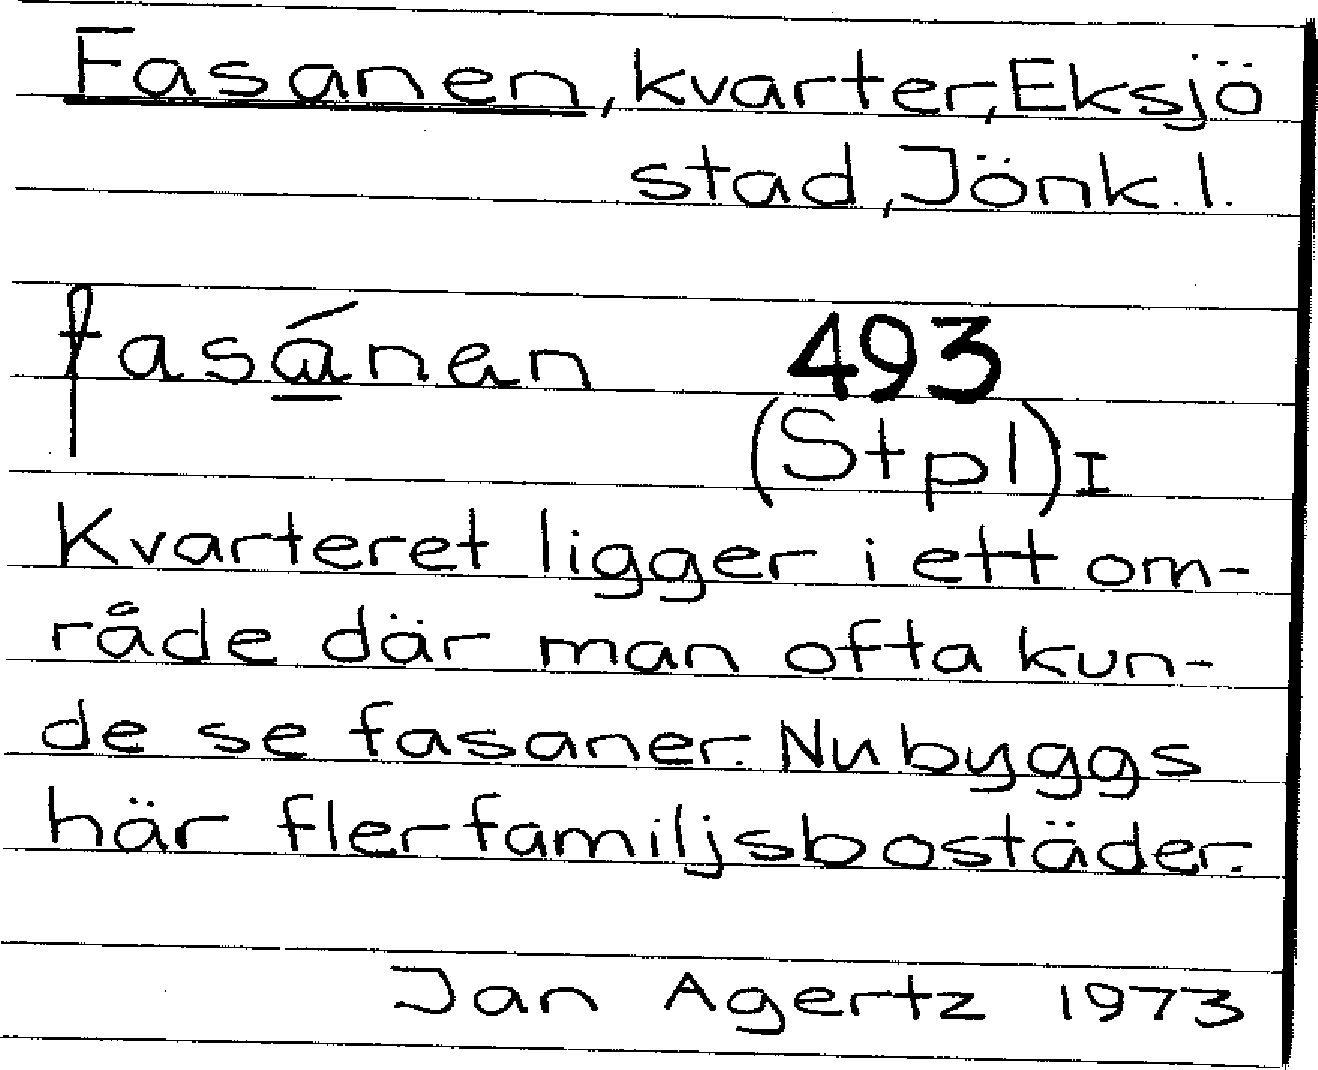 Fasanen, kvarter, Eksjö
stad, Jönk. l.
fasánen 493
(Stpl) I
Kvarteret ligger i ett om-
råde där man ofta kun-
de se fasaner. Nu byggs
här flerfamiljsbostäder.
Jan Agertz 1973